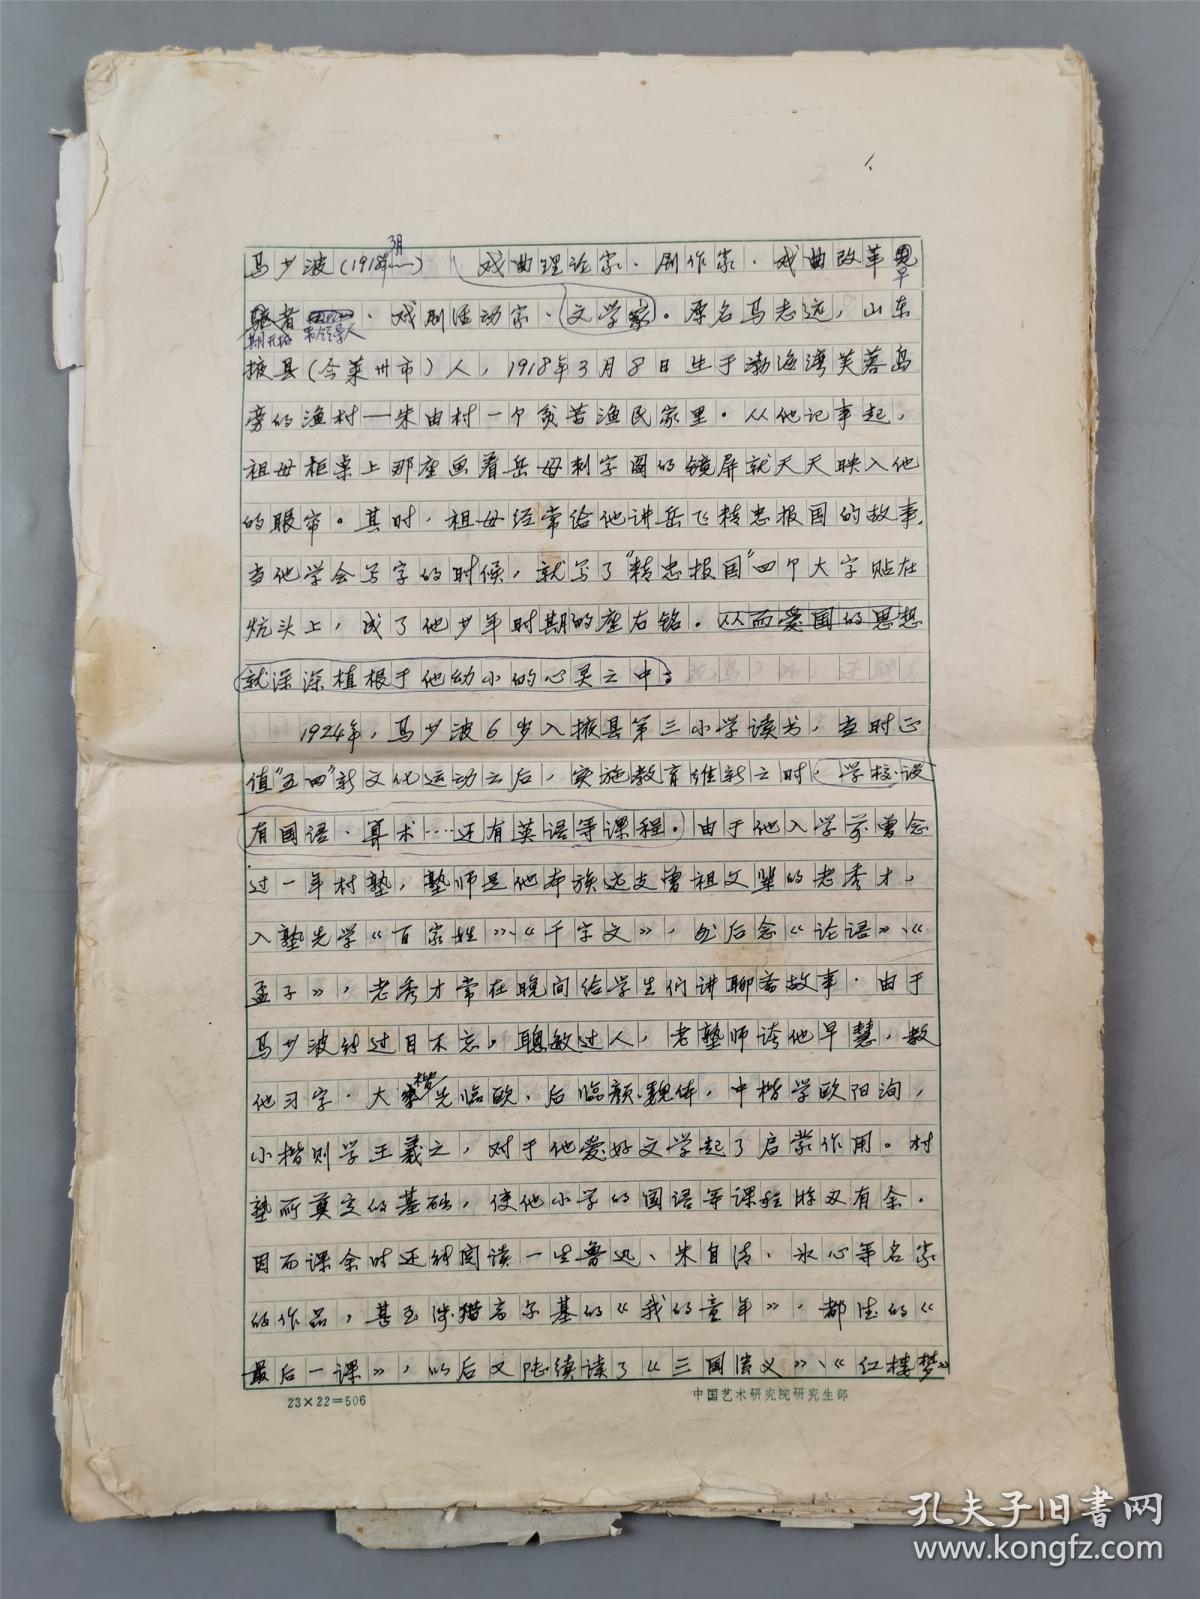 1、
3月
马少波(1918年—) 戏曲理论家、剧作家、戏曲改革早
期开拓者和领导人、戏剧活动家、文学家。原名马志远，山东
掖县(今莱州市)人，1918年3月8日生于渤海湾芙蓉岛
旁的渔村—朱由村一个贫苦渔民家里。从他记事起，
祖母柜桌上那座画着岳母刺字图的镜屏就天天映入他
的眼帘。其时，祖母经常给他讲岳飞精忠报国的故事，
当他学会写字的时候，就写了"精忠报国"四个大字贴在
炕头上，成了他少年时期的座右铭。从而爱国的思想
就深深植根于他幼小的心灵之中。
1924年，马少波6岁入掖县第三小学读书，当时正
值"五四"新文化运动之后，实施教育维新之时，学校设
有国语、算术……还有英语等课程。由于他入学前曾念
过一年村塾，塾师是他本族远支曾祖父辈的老秀才，
入塾先学《百家姓》、《千字文》，然后念《论语》、《
孟子》，老秀才常在晚间给学生们讲聊斋故事。由于
马少波能过目不忘，聪敏过人，老塾师誇他早慧，教
他习字。大楷先临欧、后临颜、魏体，中楷学欧阳询，
小楷则学王羲之，对于他爱好文学起了启蒙作用。村
塾所奠定的基础，使他小学的国语等课程游刃有余。
因而课余时还能阅读一些鲁迅、朱自清、冰心等名家
的作品，甚至涉猎高尔基的《我的童年》，都德的《
最后一课》，以后又陆续读了《三国演义》、《红楼梦》
23×22=506
中国艺术研究院研究生部
孔夫子旧书网
www.kongfz.com